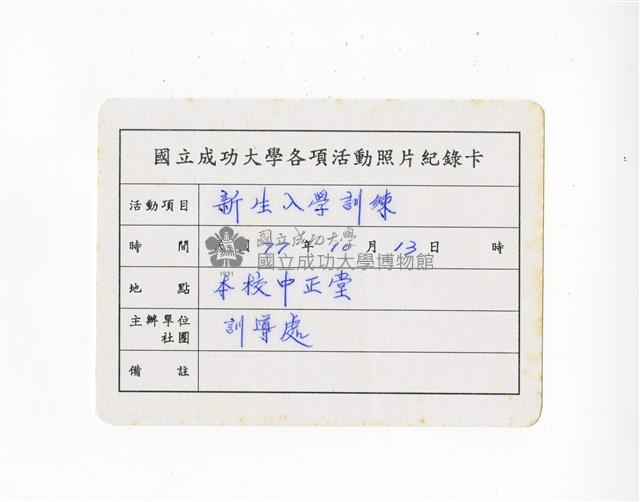 國立成功大學各項活動照片紀錄卡
活動項目 新生入学訓練
時間 民國77年10月13日 時
國立成功大學
國立成功大學博物館
1931
地點 本校中正堂
主辦單位社團 訓導處
備註